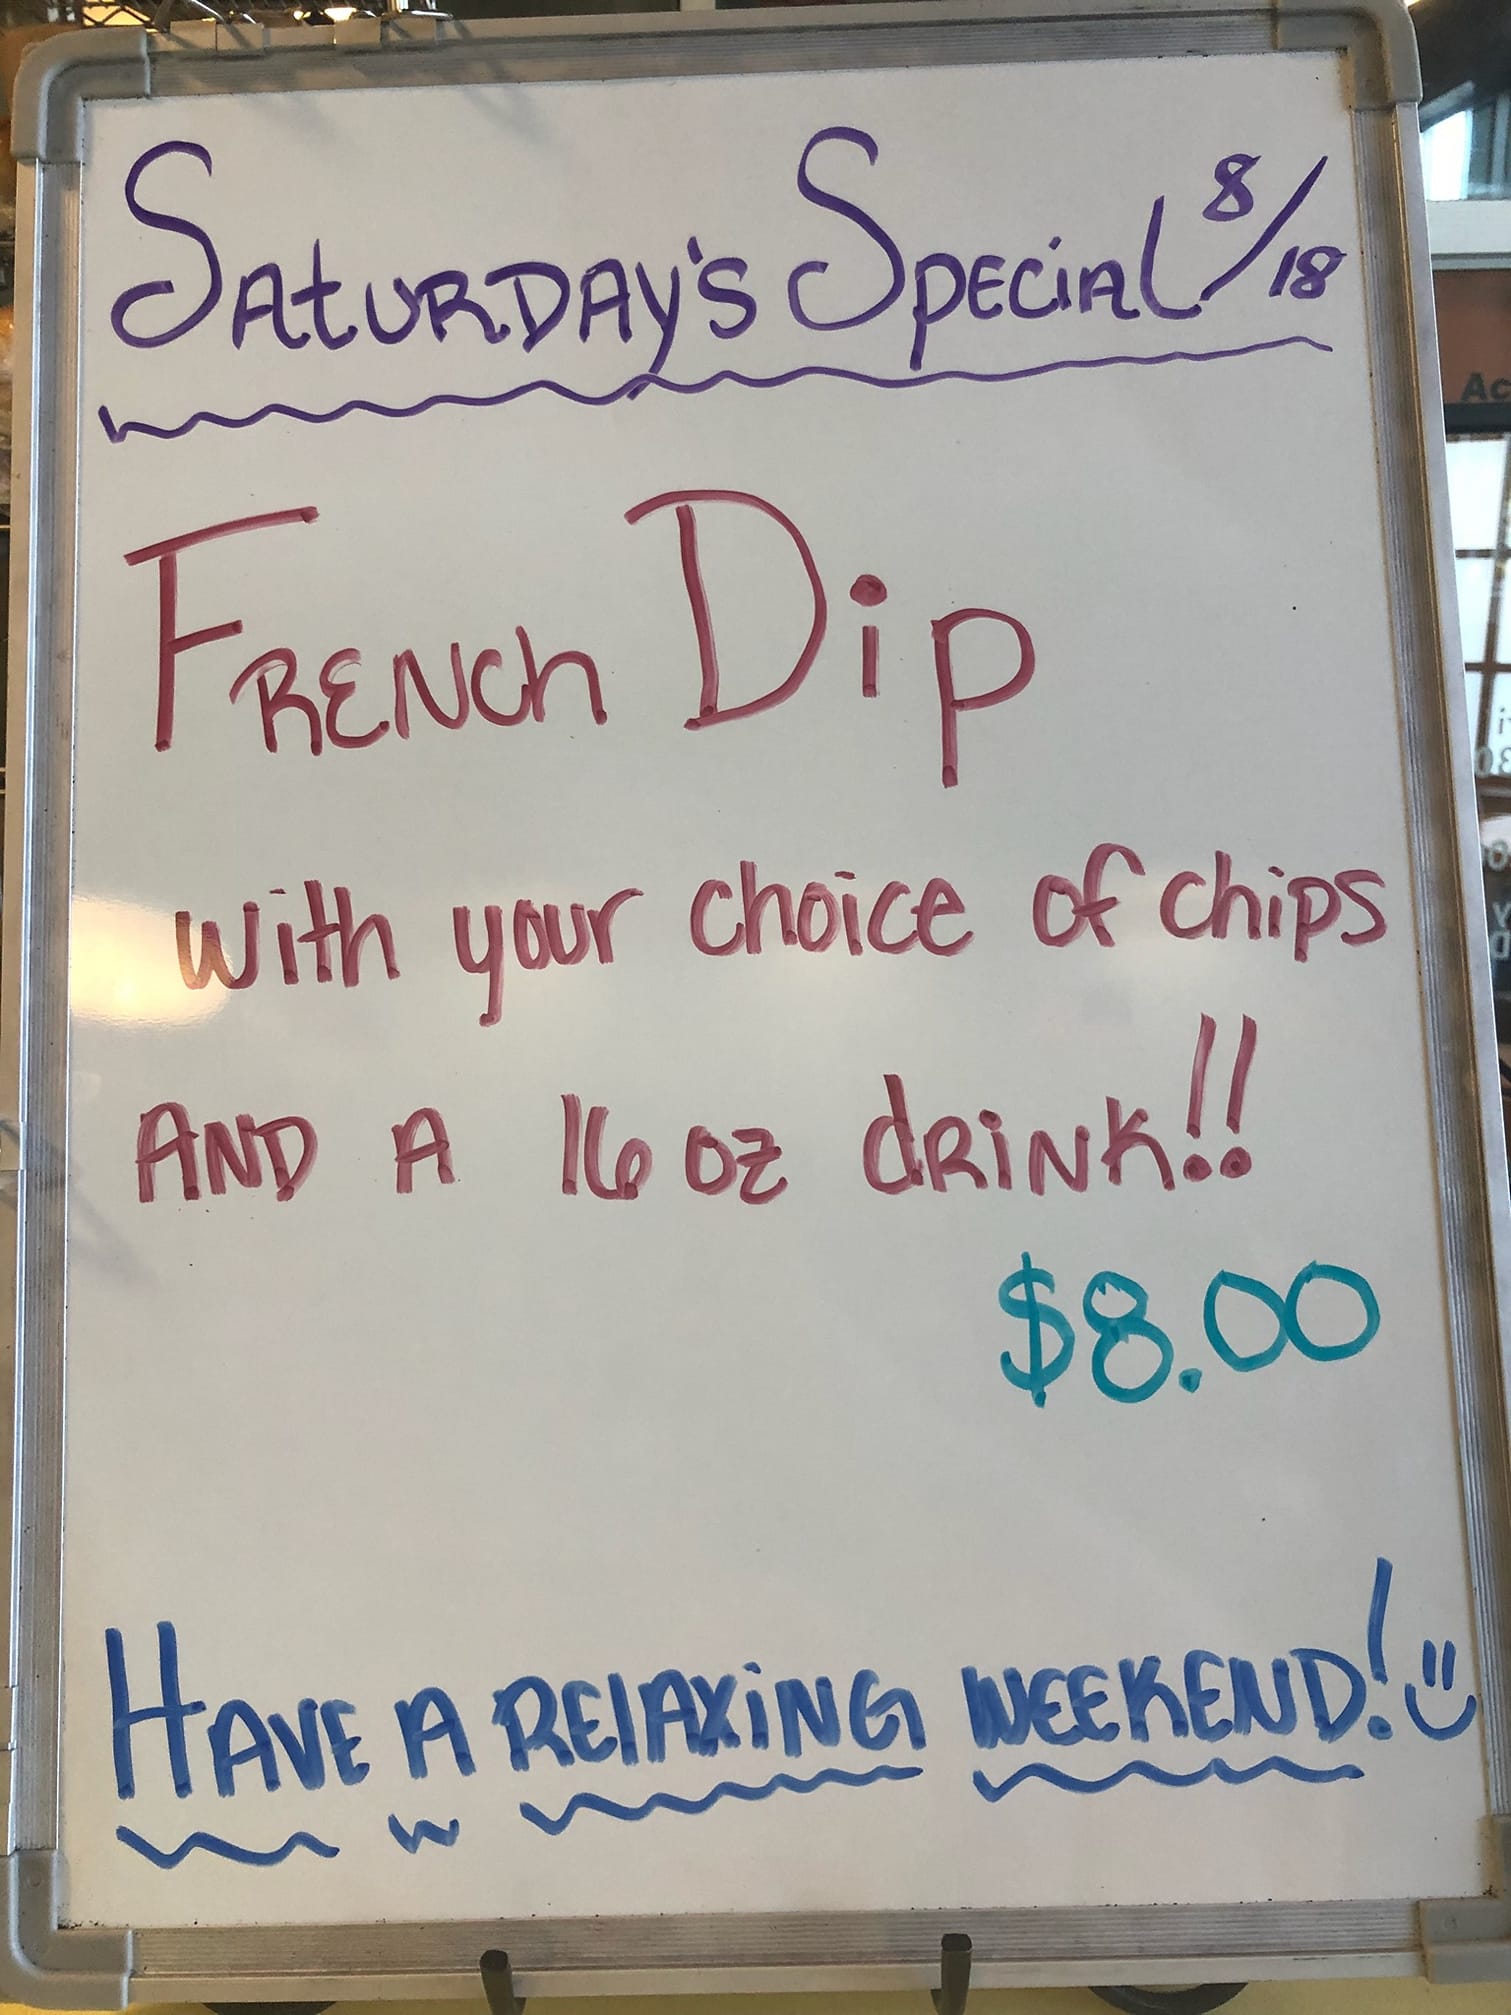 Saturday's Special 8/18
French Dip
with your choice of chips
AND A 16 oz drink!!
$8.00
Have A Relaxing Weekend!
Ac